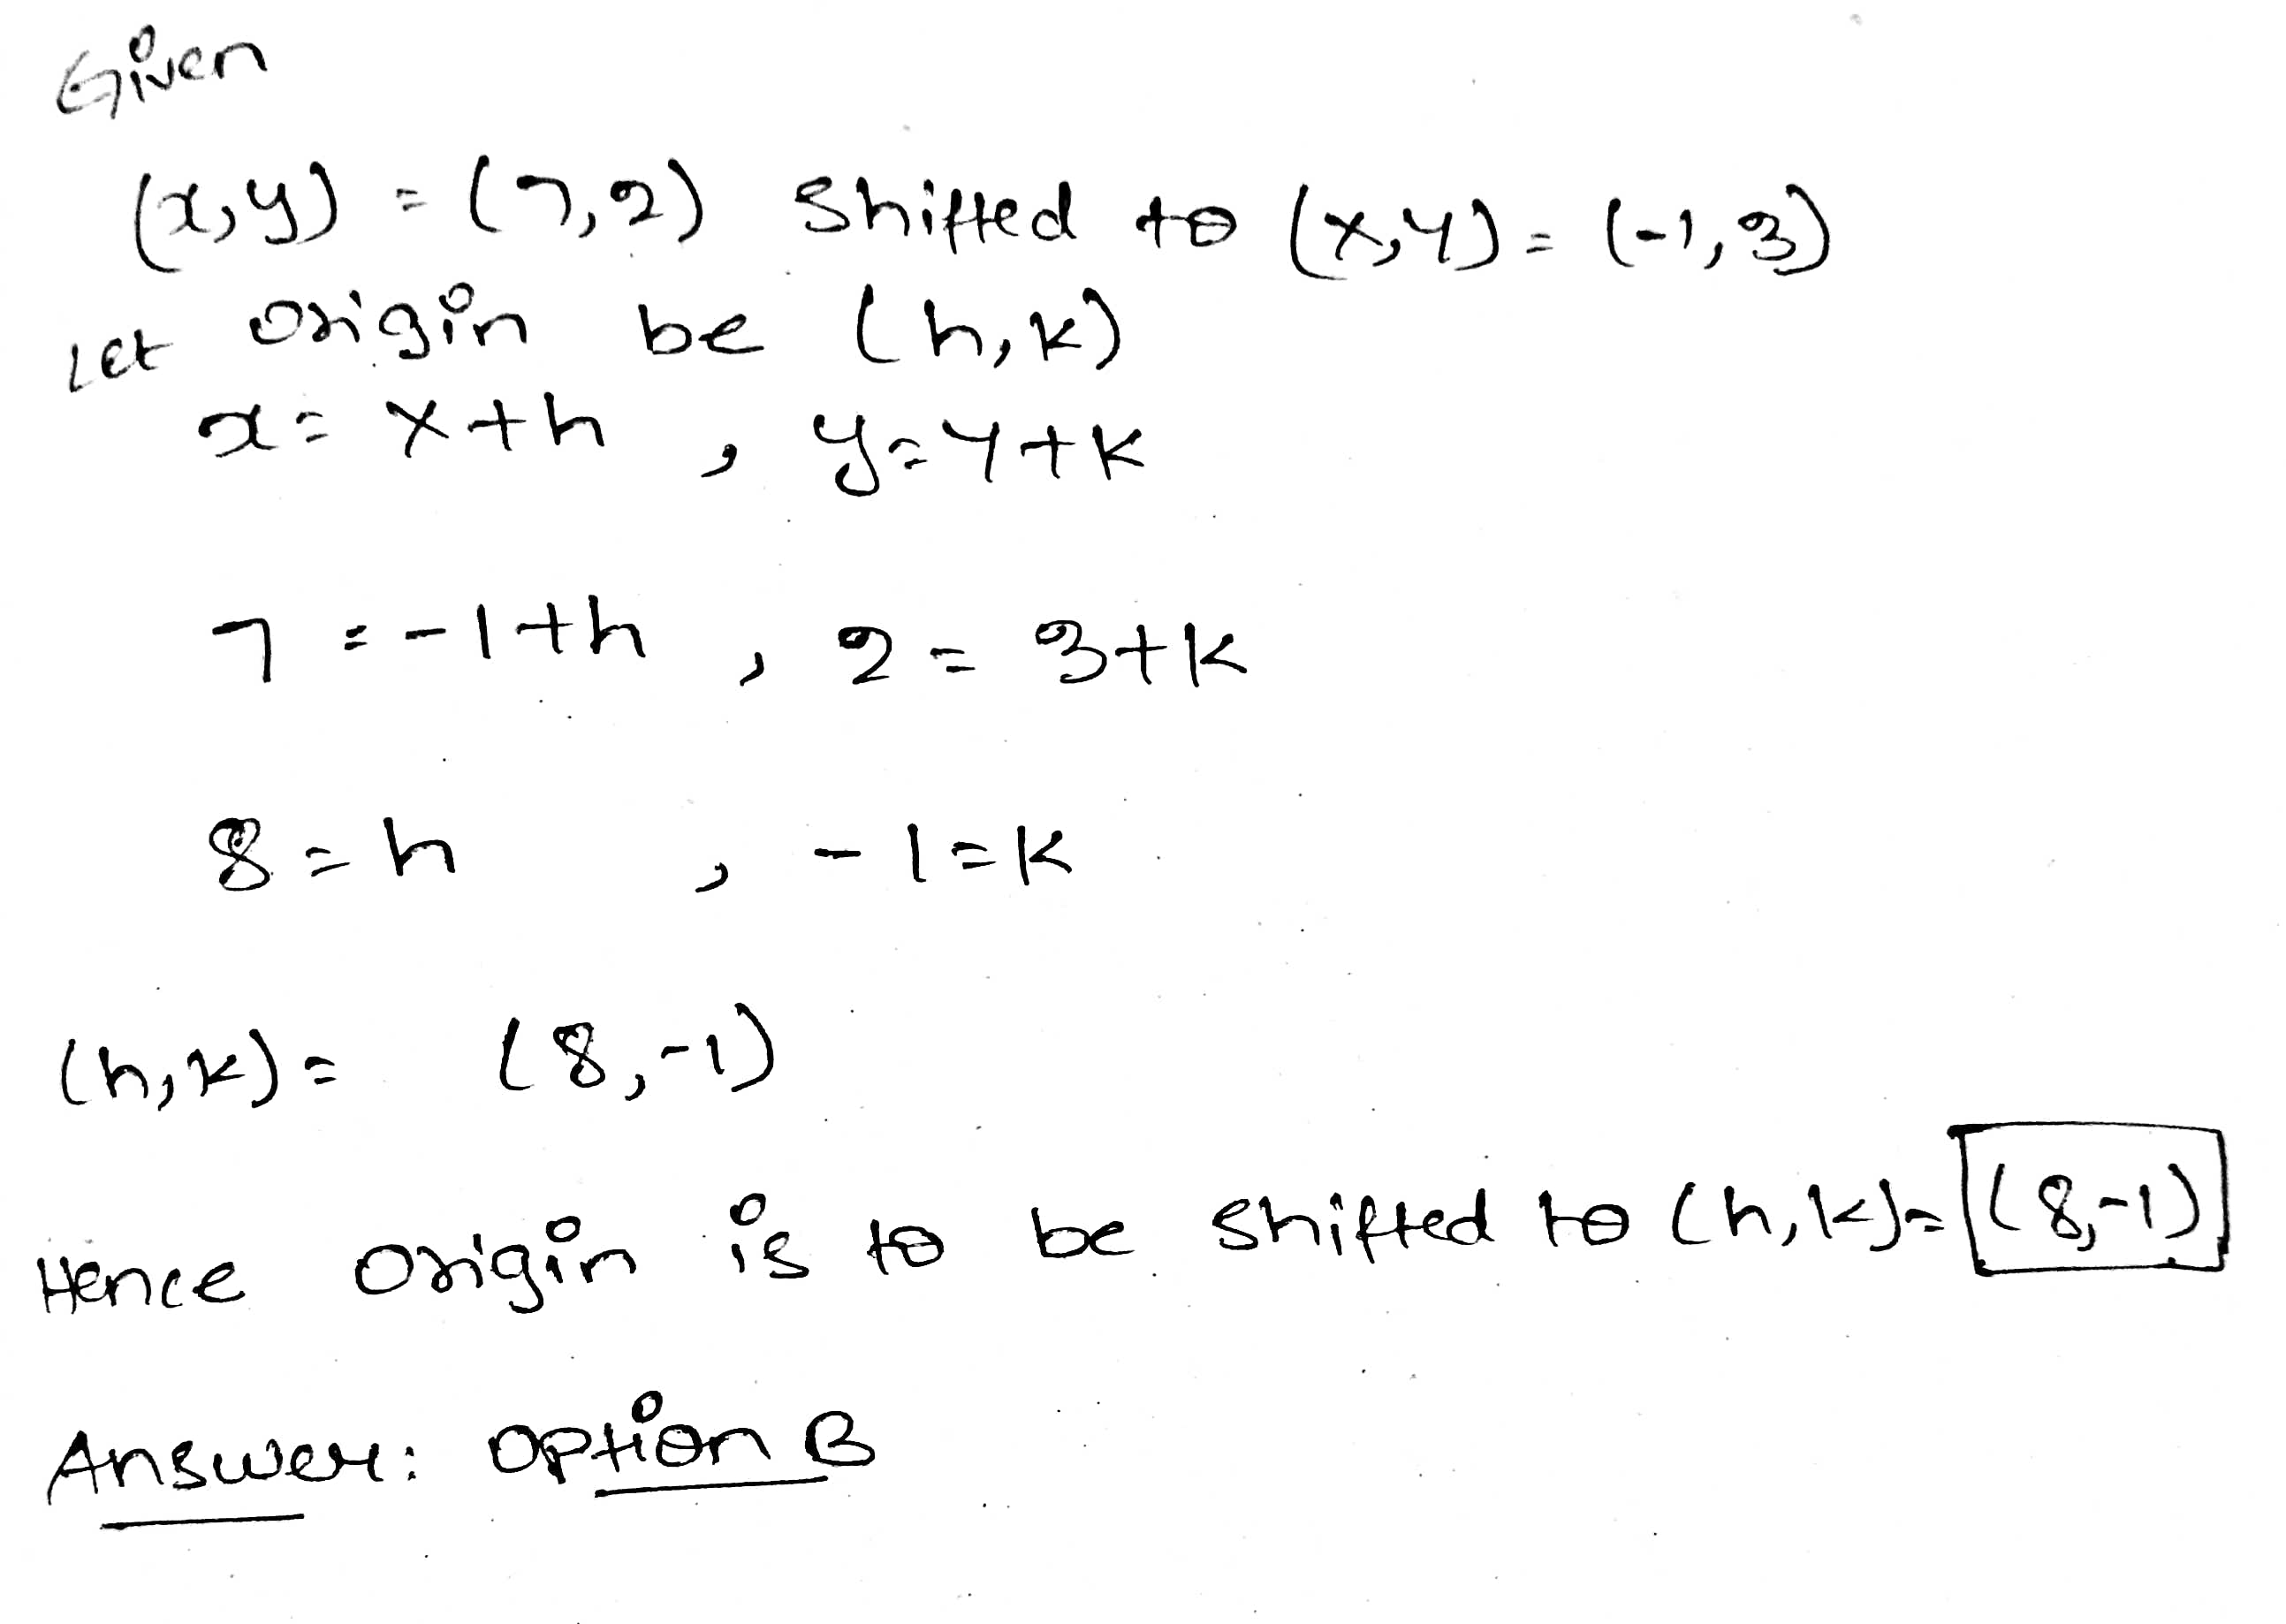 Given
(x,y) = (7,2) Shifted to (X,Y) = (-1,3)
Let origin be (h,k)
x = X+h , y = Y+k
7 = -1+h , 2 = 3+k
8 = h , -1 = k
(h,k) = (8,-1)
Hence origin is to be shifted to (h,k) = (8,-1)
Answer: Option B